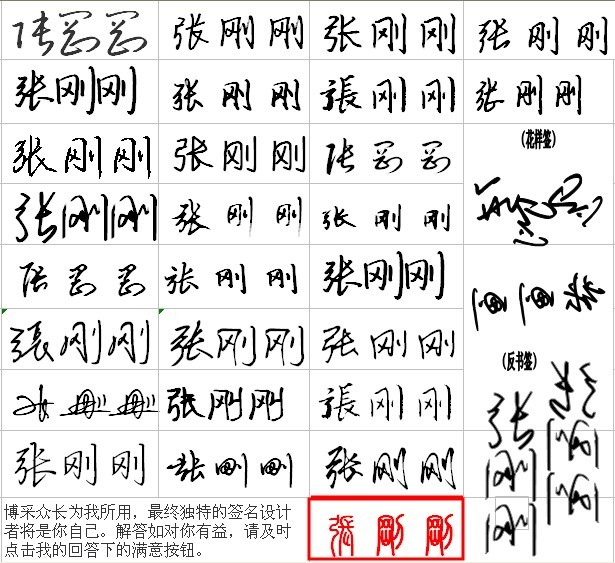 张刚刚 张刚刚 张刚刚 张刚刚
张刚刚 张刚刚 張刚刚 张刚刚
张刚刚 张刚刚 张刚刚 (花样签)
张刚刚 张刚刚 张刚刚
张刚刚 张刚刚 张刚刚
張刚刚 张刚刚 张刚刚 (反书签)
张刚刚 張刚刚
张刚刚 张刚刚 张刚刚
博采众长为我所用，最终独特的签名设计
者将是你自己。解答如对你有益，请及时
点击我的回答下的满意按钮。
張剛剛